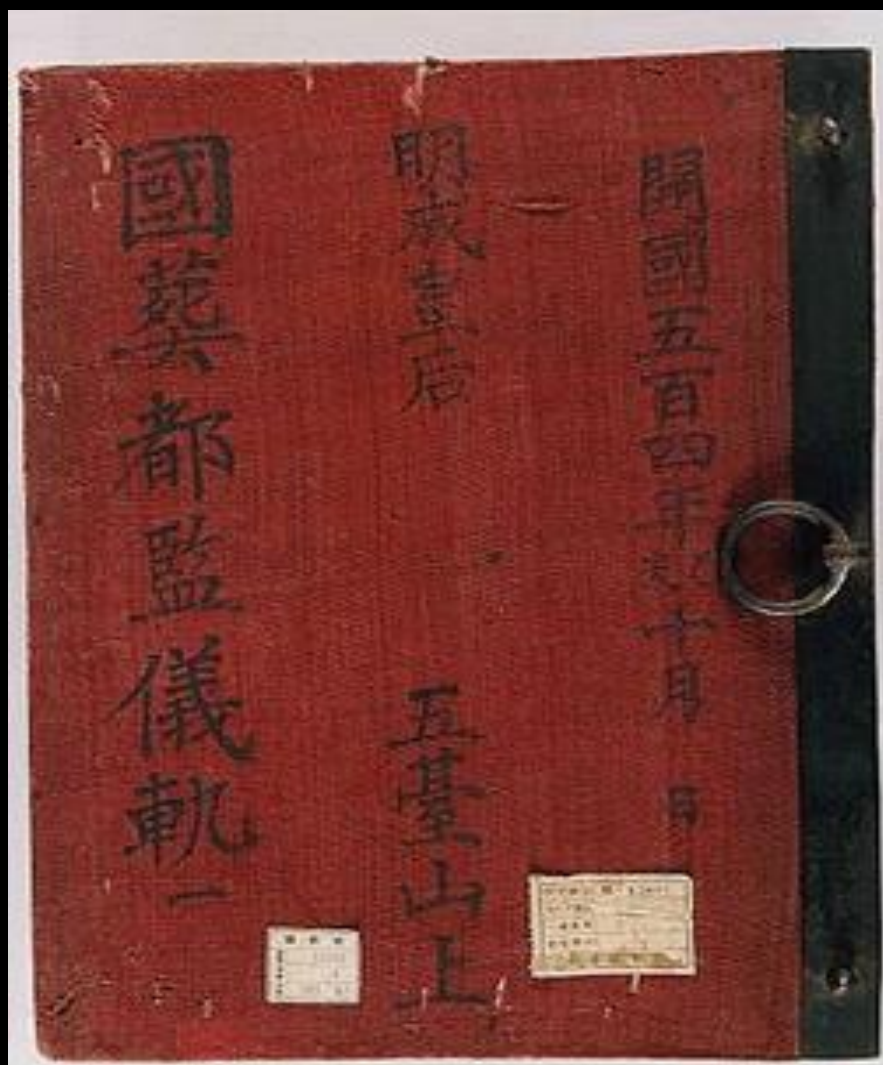 開國五百四年乙未十月 日
明成皇后 五臺山上
國葬都監儀軌一